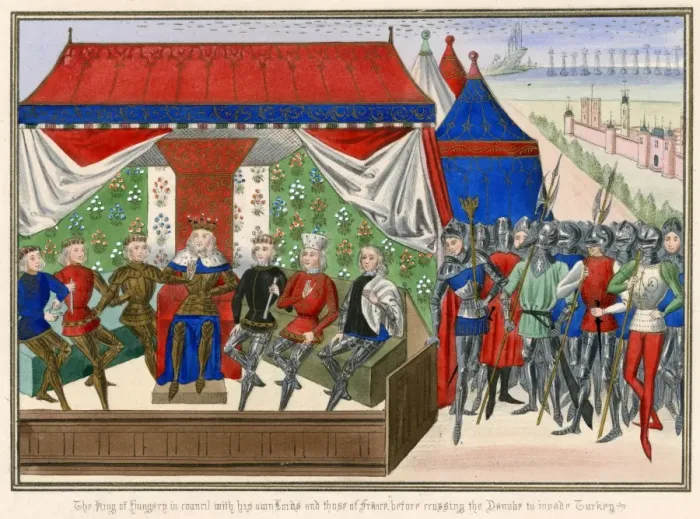 The King of Hungary in council with his own Lords and those of France, before crossing the Danube to invade Turkey